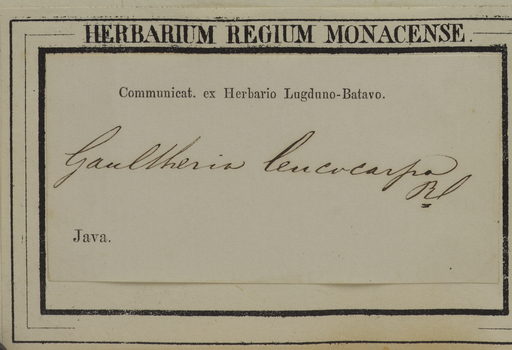 HERBARIUM REGIUM MONACENSE.
Communicat. ex Herbario Lugduno-Batavo.
Gaultheria leucocarpa
Bl
Java.